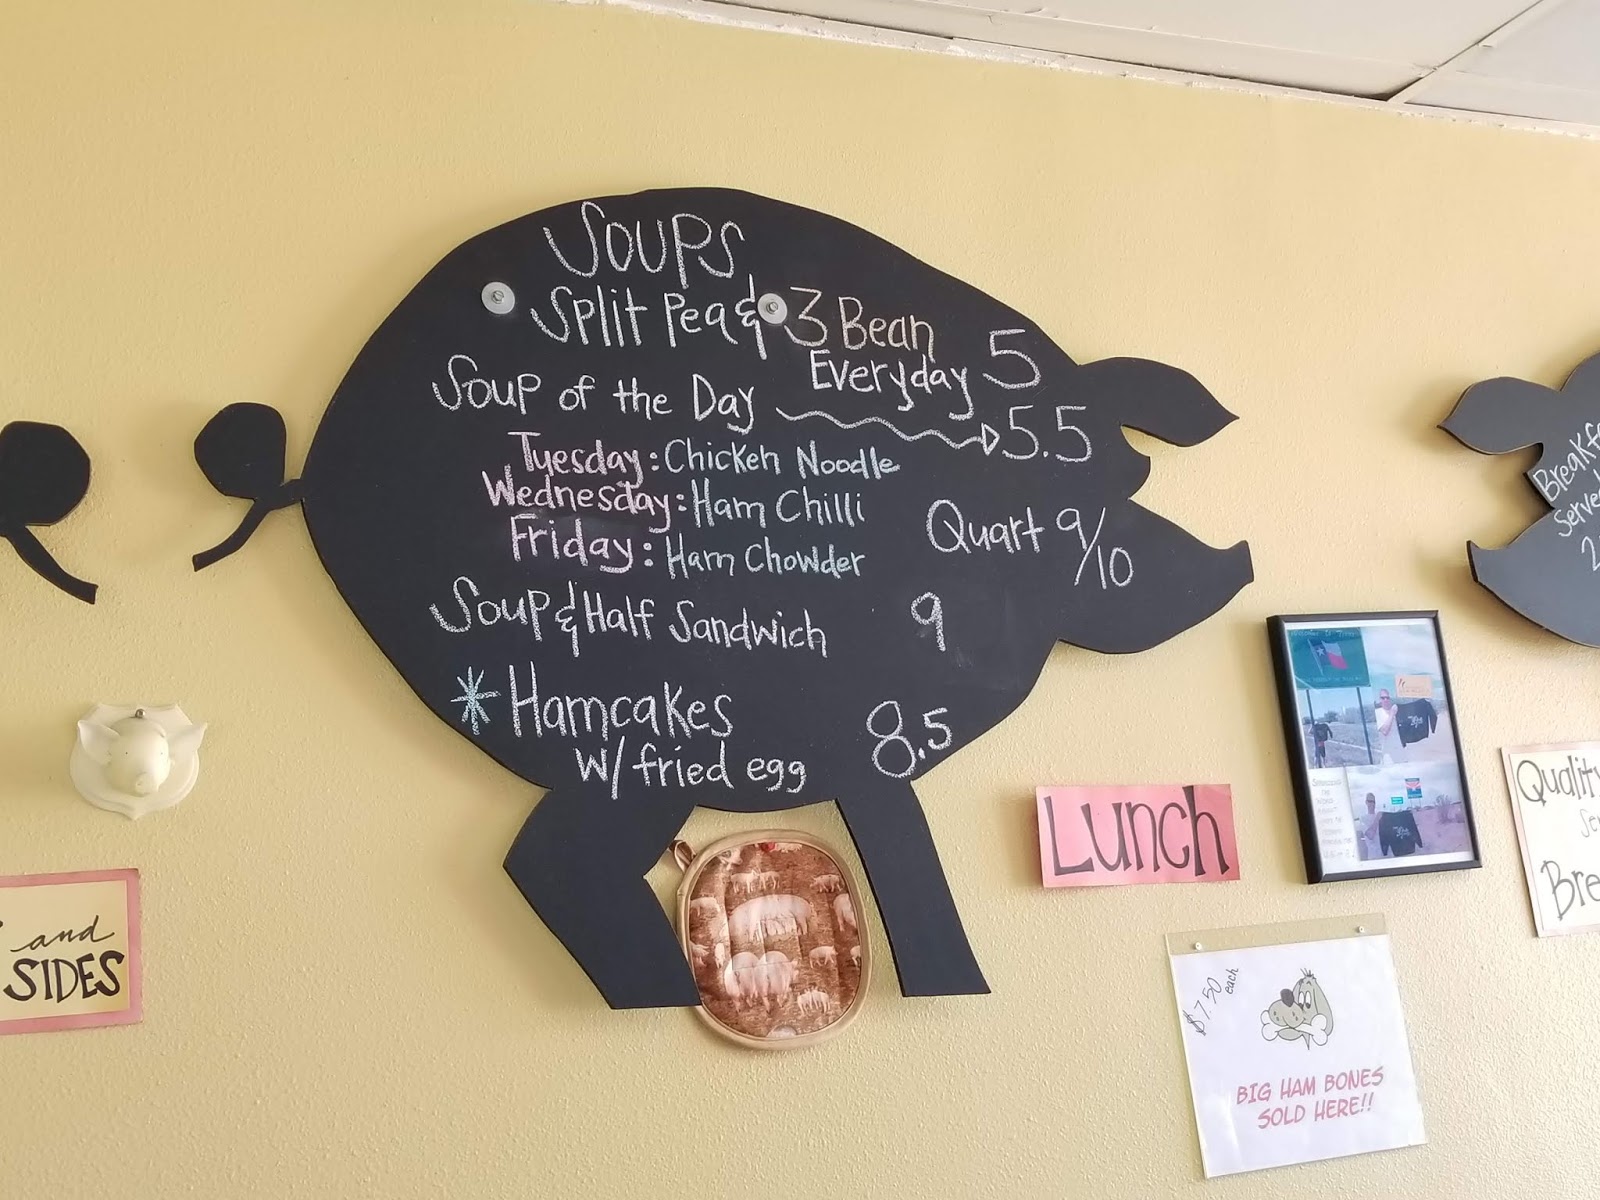 Soups
Split Pea & 3 Bean
Everyday 5
Soup of the Day 5.5
Tuesday: Chicken Noodle
Wednesday: Ham Chilli
Friday: Ham Chowder
Quart 9/10
Soup & Half Sandwich 9
* Hamcakes
w/ fried egg 8.5
Lunch
and
SIDES
$7.50 each
BIG HAM BONES
SOLD HERE!!
Quality